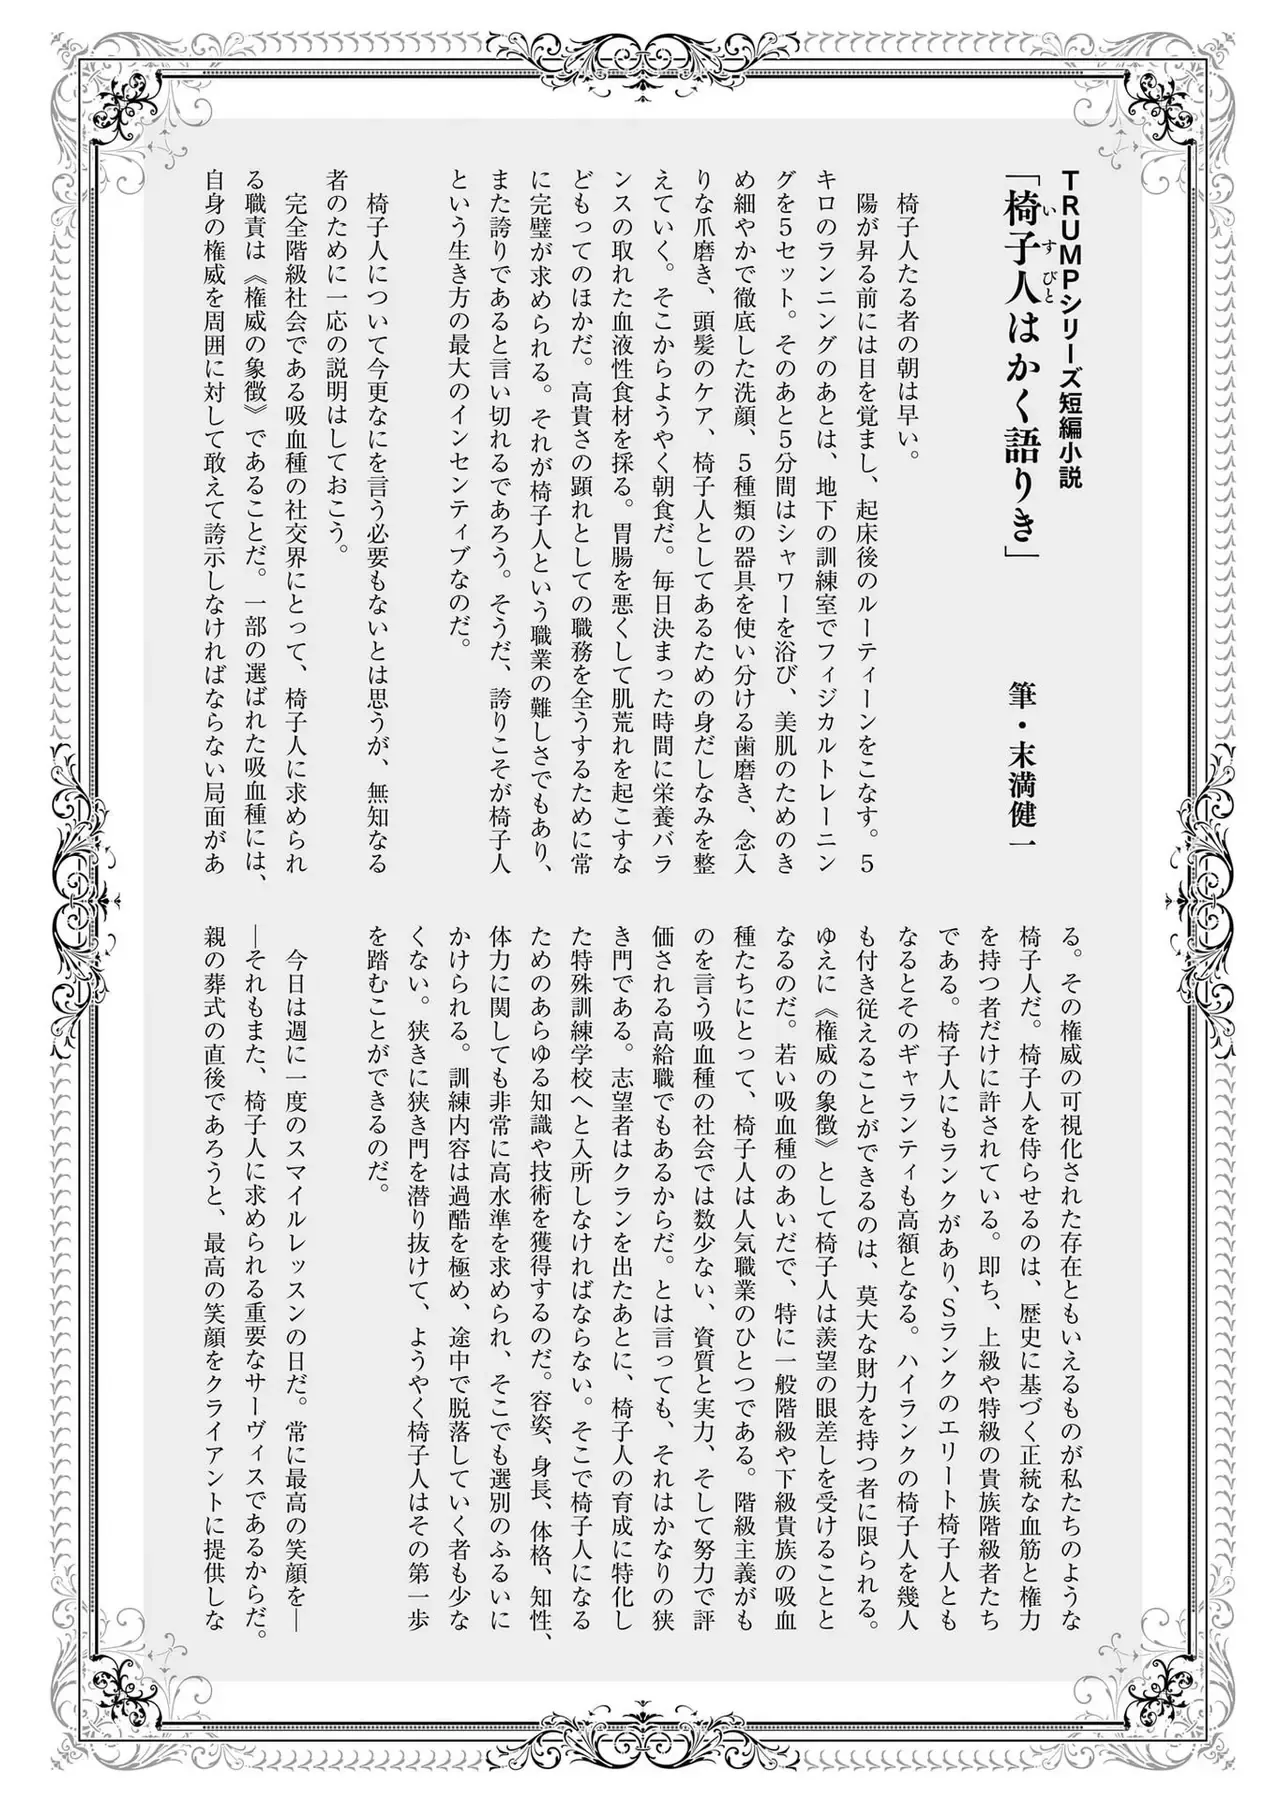 TRUMPシリーズ短編小説
「椅子人はかく語りき」
いすびと
筆・末満健一
椅子人たる者の朝は早い。
陽が昇る前には目を覚まし、起床後のルーティーンをこなす。5
キロのランニングのあとは、地下の訓練室でフィジカルトレーニン
グを5セット。そのあと5分間はシャワーを浴び、美肌のためのき
め細やかで徹底した洗顔、5種類の器具を使い分ける歯磨き、念入
りな爪磨き、頭髪のケア、椅子人としてあるための身だしなみを整
えていく。そこからようやく朝食だ。毎日決まった時間に栄養バラ
ンスの取れた血液性食材を採る。胃腸を悪くして肌荒れを起こすな
どもってのほかだ。高貴さの顕れとしての職務を全うするために常
に完璧が求められる。それが椅子人という職業の難しさでもあり、
また誇りであると言い切れるであろう。そうだ、誇りこそが椅子人
という生き方の最大のインセンティブなのだ。
椅子人について今更なにを言う必要もないとは思うが、無知なる
者のために一応の説明はしておこう。
完全階級社会である吸血種の社交界にとって、椅子人に求められ
る職責は《権威の象徴》であることだ。一部の選ばれた吸血種には、
自身の権威を周囲に対して敢えて誇示しなければならない局面があ
る。その権威の可視化された存在ともいえるものが私たちのような
椅子人だ。椅子人を侍らせるのは、歴史に基づく正統な血筋と権力
を持つ者だけに許されている。即ち、上級や特級の貴族階級者たち
である。椅子人にもランクがあり、Sランクのエリート椅子人とも
なるとそのギャランティも高額となる。ハイランクの椅子人を幾人
も付き従えることができるのは、莫大な財力を持つ者に限られる。
ゆえに《権威の象徴》として椅子人は羨望の眼差しを受けることと
なるのだ。若い吸血種のあいだで、特に一般階級や下級貴族の吸血
種たちにとって、椅子人は人気職業のひとつである。階級主義がも
のを言う吸血種の社会では数少ない、資質と実力、そして努力で評
価される高給職でもあるからだ。とは言っても、それはかなりの狭
き門である。志望者はクランを出たあとに、椅子人の育成に特化し
た特殊訓練学校へと入所しなければならない。そこで椅子人になる
ためのあらゆる知識や技術を獲得するのだ。容姿、身長、体格、知性、
体力に関しても非常に高水準を求められ、そこでも選別のふるいに
かけられる。訓練内容は過酷を極め、途中で脱落していく者も少な
くない。狭きに狭き門を潜り抜けて、ようやく椅子人はその第一歩
を踏むことができるのだ。
今日は週に一度のスマイルレッスンの日だ。常に最高の笑顔を―
―それもまた、椅子人に求められる重要なサーヴィスであるからだ。
親の葬式の直後であろうと、最高の笑顔をクライアントに提供しな